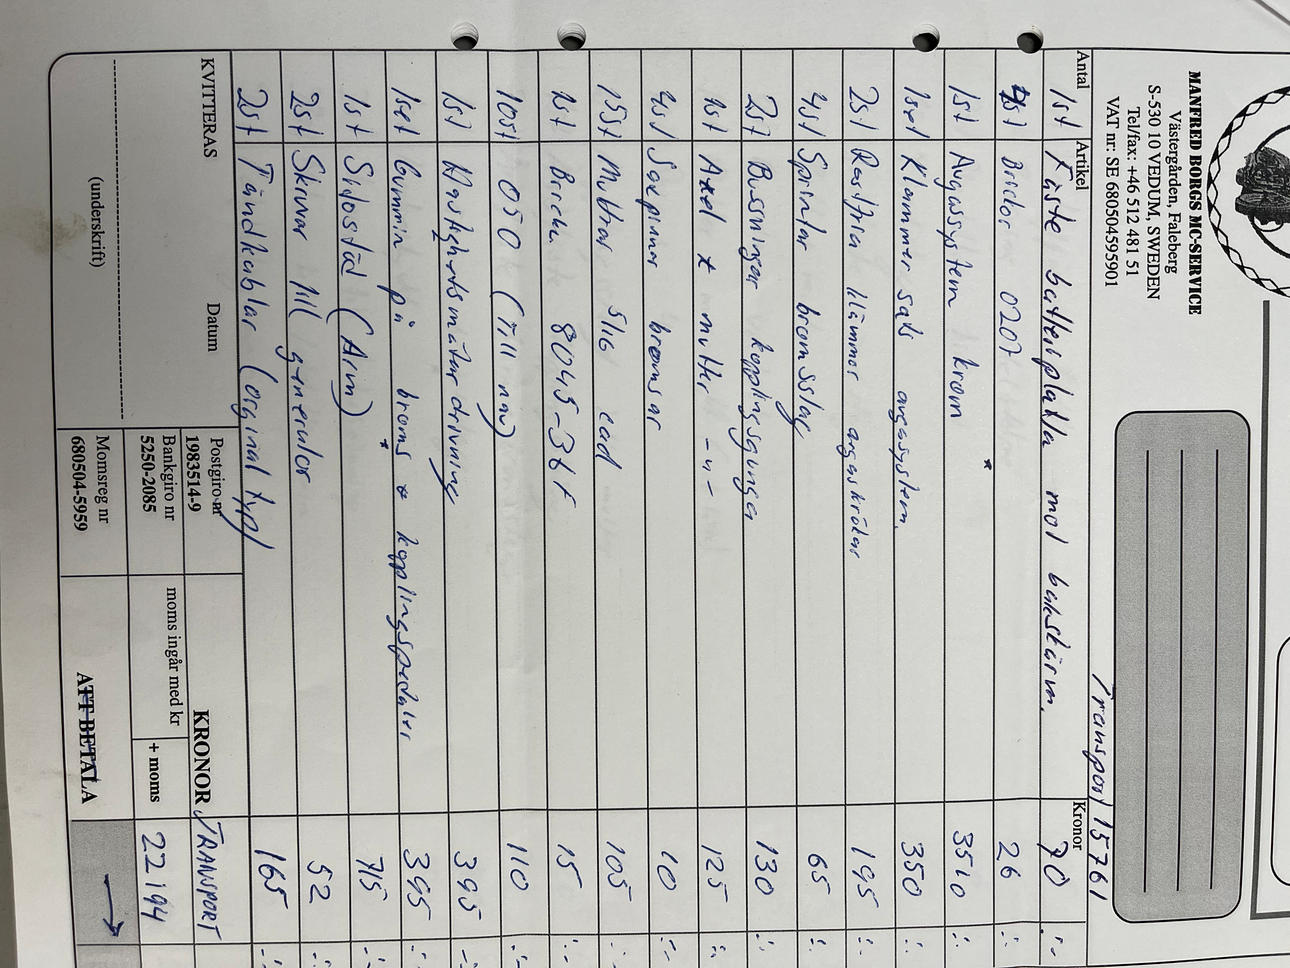 MANFRED BORGS MC-SERVICE
Västergården, Faleberg
S-530 10 VEDUM, SWEDEN
Tel/fax: +46 512 481 51
VAT nr: SE 680504595901
Transport 15761
Antal Artikel Kronor
1st Fäste batteriplatta mot bakskärm. 70 :-
2st Brickor 0207 26 :-
1st Avgassystem krom 3510 :-
1set Klammer sats avgassystem. 350 :-
2st Rostfria klämmor avgaskrökar 195 :-
4st Sprintar bromsstag 65 :-
2st Bussningar kopplingsgunga 130 :-
1st Axel + mutter -"- 125 :-
4st Saxpinnar bromsar 10 :-
15st Muttrar 5/16 cad 105 :-
1st Bricka 8045-36F 15 :-
10st 050 (Till nav) 110 :-
1st Hastighetsmätardrivning 395 :-
1set Gummin på broms + kopplingspedaler 395 :-
1st Sidostöd (Arm) 715 :-
2st Skruvar till generator 52 :-
2st Tändkablar (orginal typ) 165 :-
KVITTERAS Datum
(underskrift)
Postgiro nr
1983514-9
Bankgiro nr
5250-2085
Momsreg nr
680504-5959
KRONOR TRANSPORT
moms ingår med kr + moms 22194
ATT BETALA